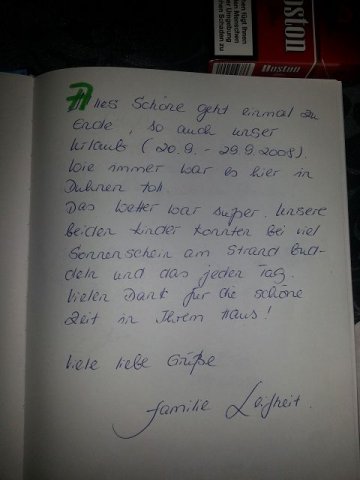 fügt Ihnen
Menschen
Umgebung
Schaden zu
Boston
Boston
Alles Schöne geht einmal zu
Ende, so auch unser
Urlaub (20.9. - 29.9.2008).
Wie immer war es hier in
Duhnen toll.
Das Wetter war super. Unsere
beiden Kinder konnten bei viel
Sonnenschein am Strand bud-
deln und das jeden Tag.
Vielen Dank für die schöne
Zeit in Ihrem Haus!
Viele liebe Grüße
Familie